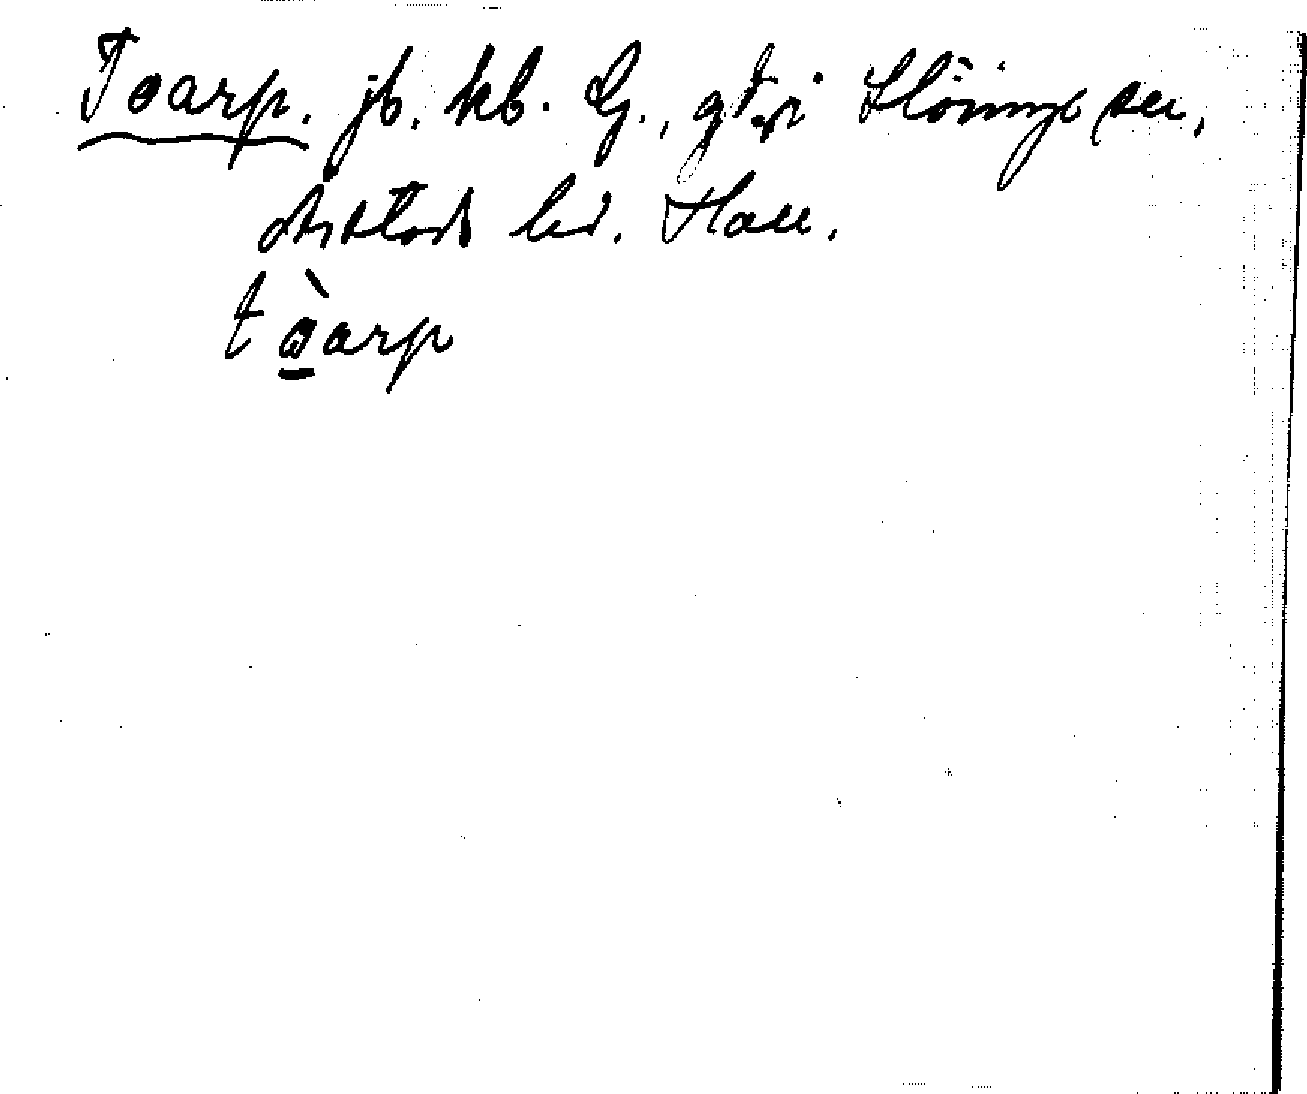 Toarp. jb. kb. G., gd i Slöinge sn,
Årstads hd. Hall.
tòarp